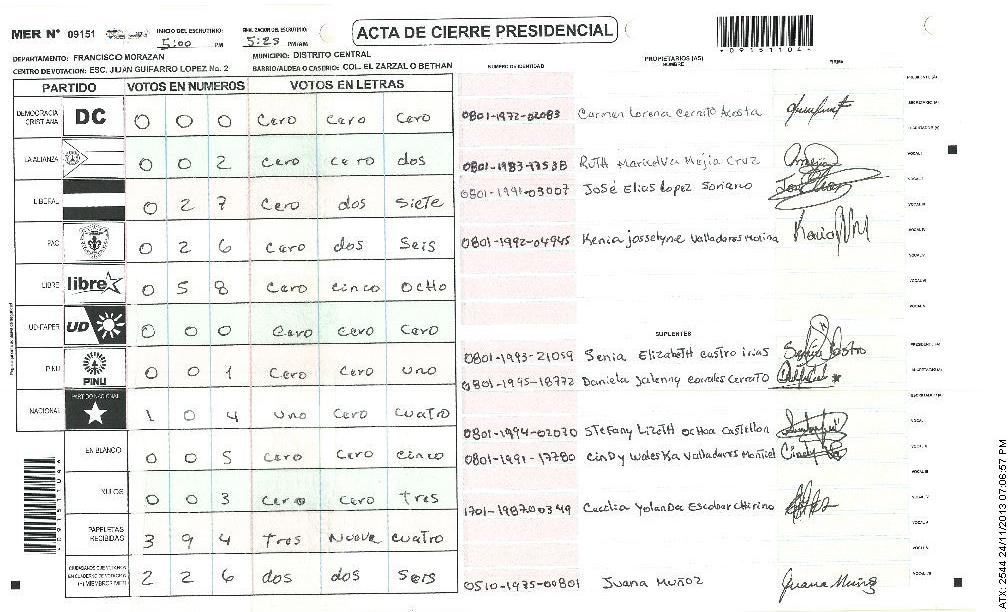 MER N° 09151
INICIO DEL ESCRUTINIO:
5:00 PM
5:25 PM/AM
ACTA DE CIERRE PRESIDENCIAL
*0915110
DEPARTAMENTO: FRANCISCO MORAZAN
MUNICIPIO: DISTRITO CENTRAL
CENTRO DE VOTACION: ESC. JUAN GUIFARRO LOPEZ No. 2
BARRIO/ALDEA O CASERIO: COL. EL ZARZAL O BETHAN
NUMERO DE IDENTIDAD
PROPIETARIOS (AS)
NOMBRE
FIRMA
PARTIDO VOTOS EN NUMEROS VOTOS EN LETRAS
DEMOCRACIA CRISTIANA DC 0 0 0 Cero Cero Cero
LA ALIANZA 0 0 2 Cero Cero dos
LIBERAL 0 2 7 Cero dos Siete
PAC 0 2 6 Cero dos Seis
LIBRE libre 0 5 8 Cero Cinco Ocho
UD-FAPER UD 0 0 0 Cero Cero Cero
PINU PINU 0 0 1 Cero Cero uno
NACIONAL PARTIDO NACIONAL 1 0 4 uno Cero Cuatro
EN BLANCO 0 0 5 Cero Cero Cinco
NULOS 0 0 3 Cero Cero Tres
PAPELETAS RECIBIDAS 3 9 4 Tres Nueve Cuatro
CIUDADANOS QUE VOTARON 2 2 6 dos dos Seis
0801-1972-02083 Carmen Lorena Cerrato Acosta
0801-1983-17538 Ruth Maricelva Mejia Cruz
0801-1991-03007 José Elias Lopez Soriano
0801-1992-04945 Kenia josselyne Valladares Molina
SUPLENTES
0801-1993-21059 Senia Elizabeth castro irias
0801-1995-18772 Daniela Jalenny corrales Cerrato
0801-1994-02070 Stefany Lizeth Ochoa Castellon
0801-1991-17780 Cindy Waleska Valladares Montiel
1701-1987-00349 Cecilia Yolanda Escobar Chirino
0510-1975-00801 Juana Muñoz Juana Muñoz
ATX: 2544 24/11/2013 07:06:57 PM